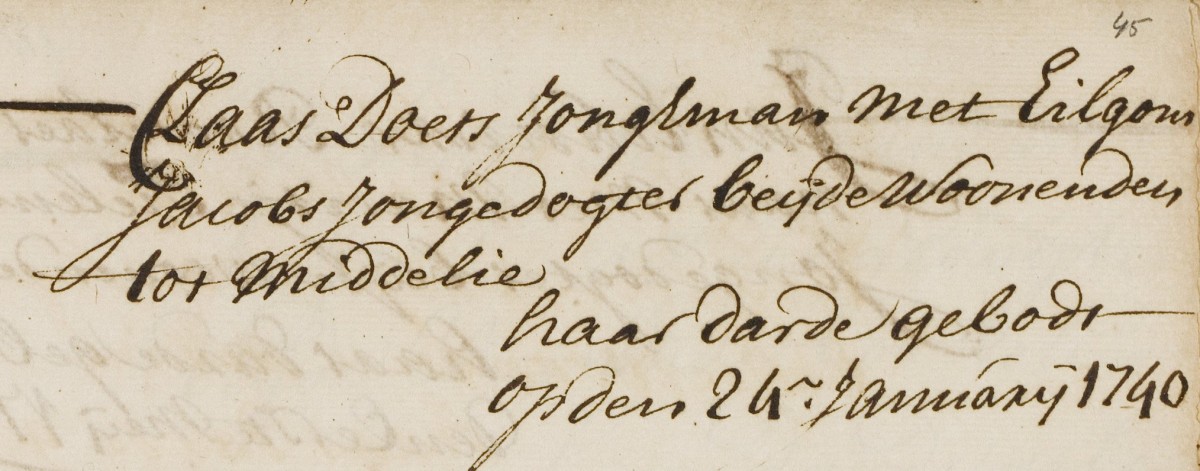 45
Claas Doets Jonghman met Eilgom
Jacobs Jongedogter beijde woonenden
tot Middelie
haar darde gebodt
op den 24 January 1740